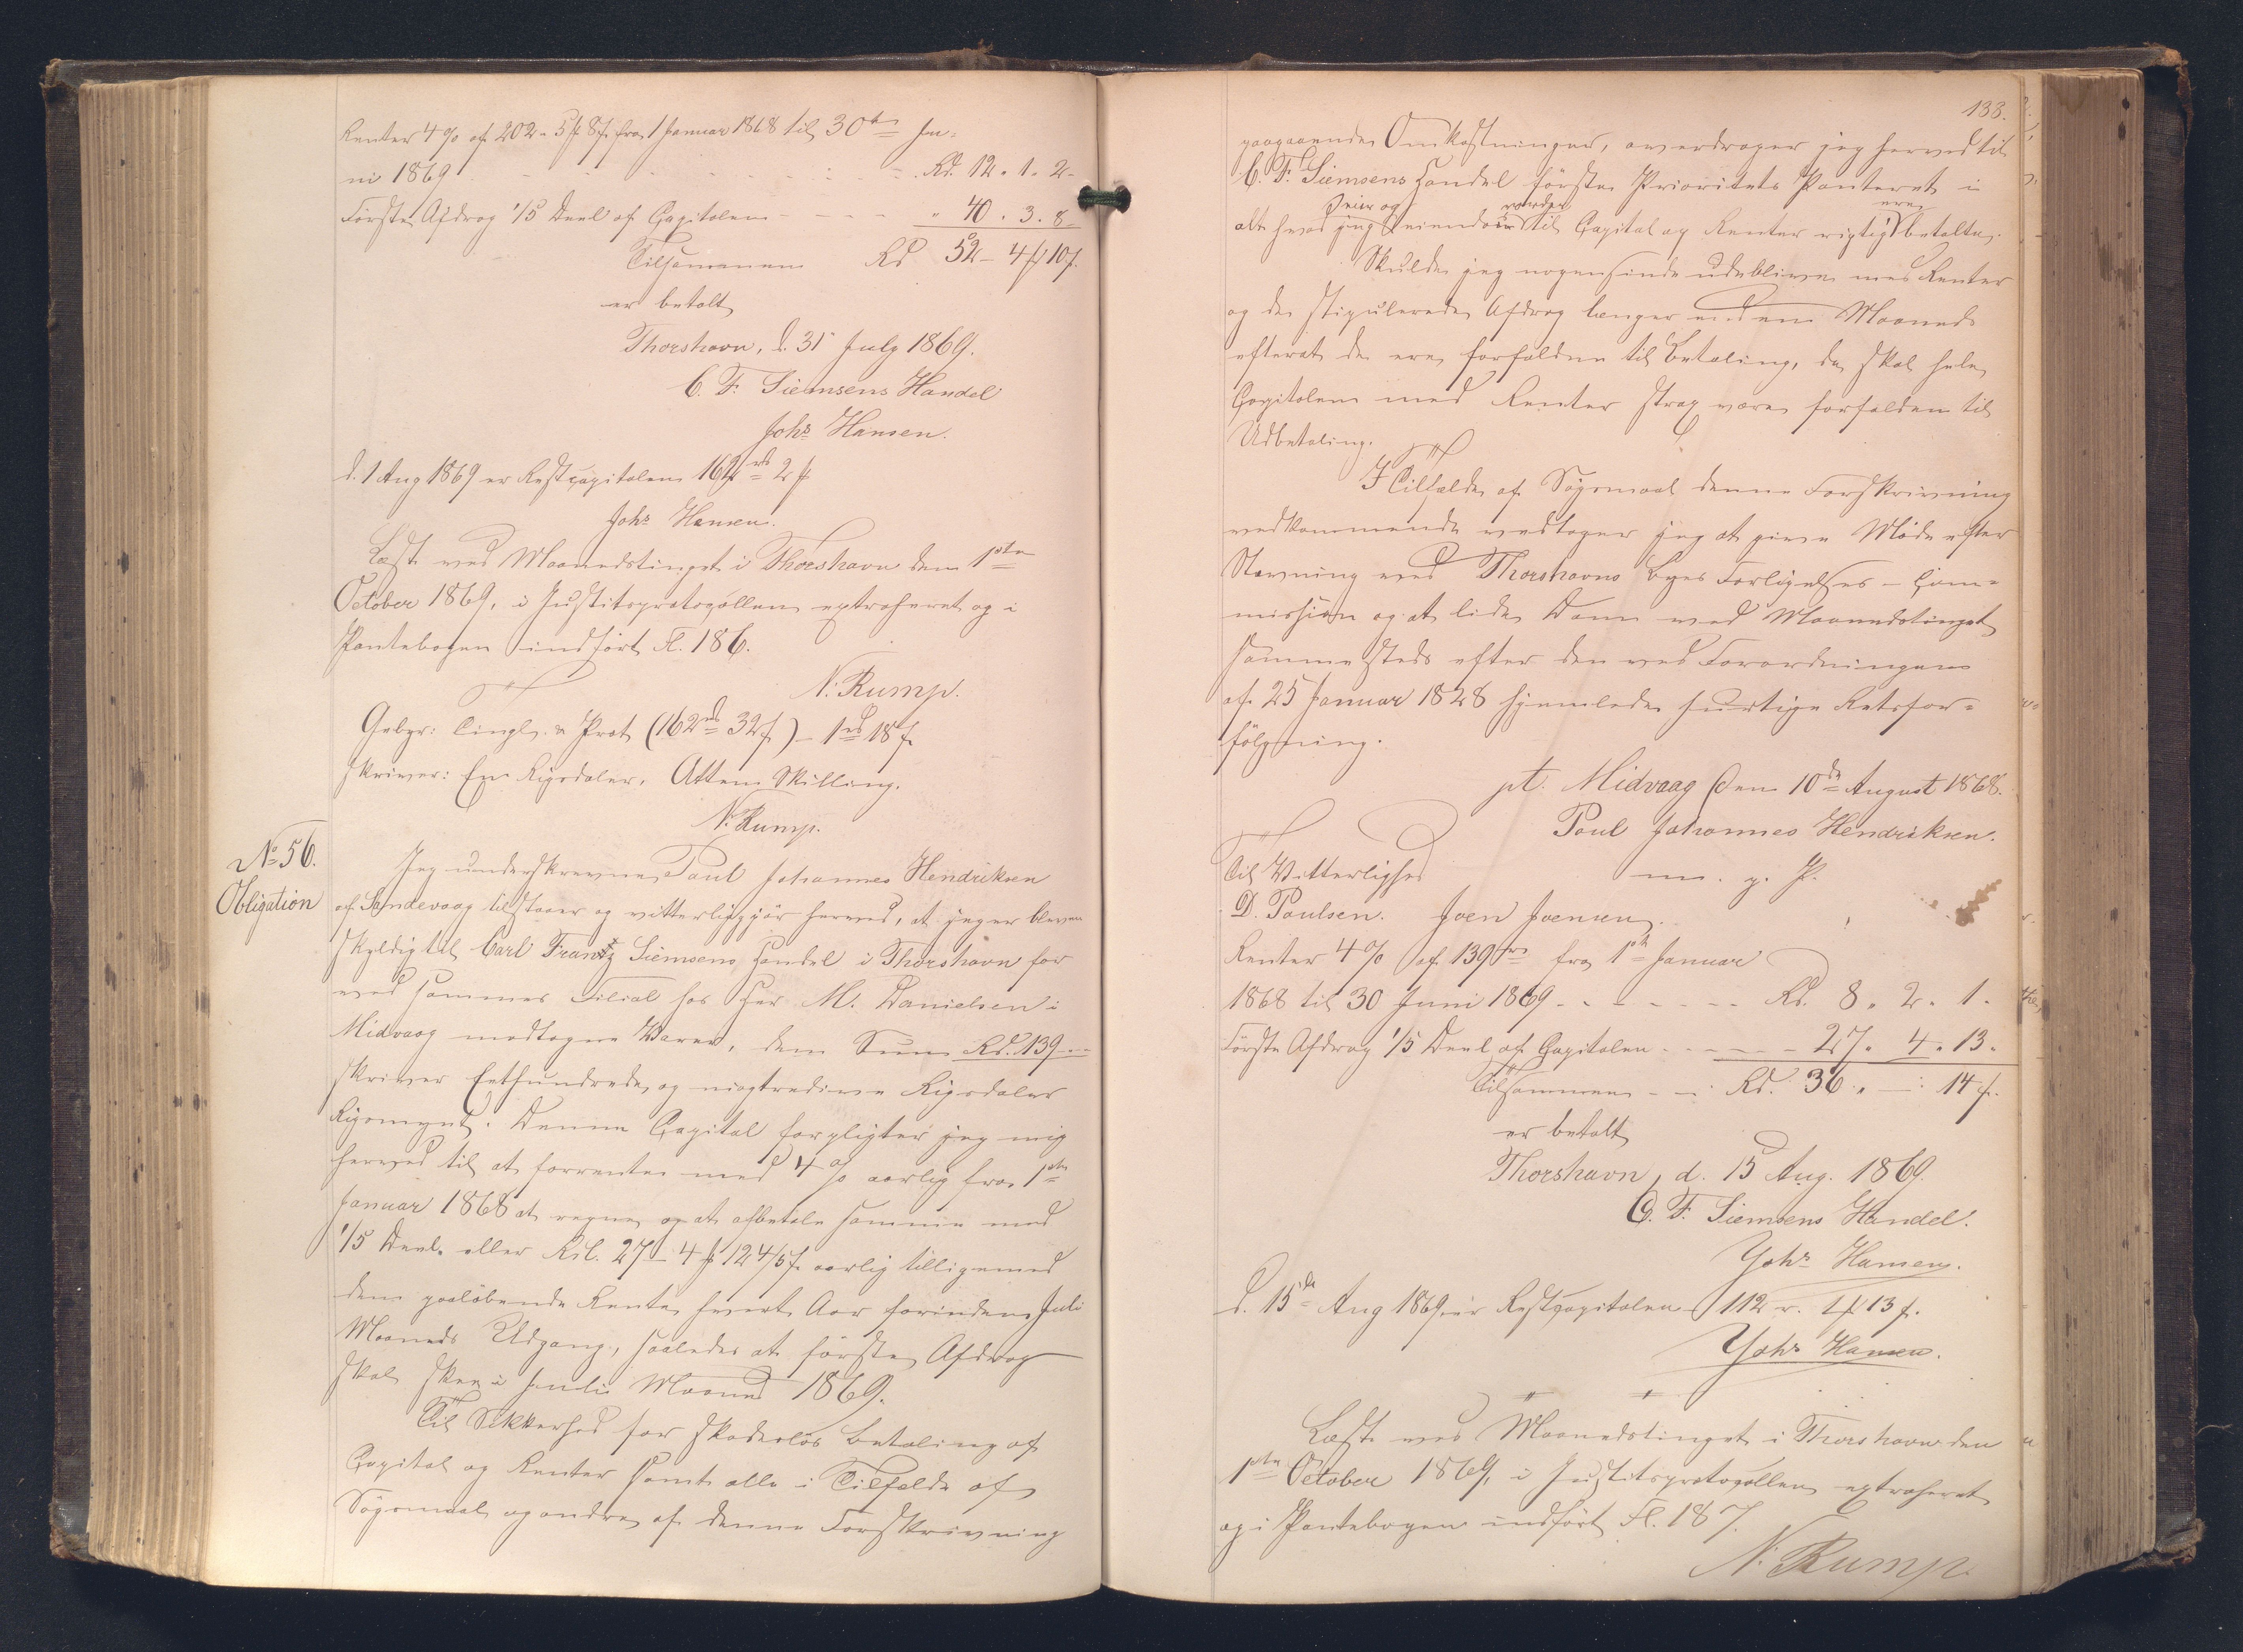 Renter 4 % af 202 - 5 ℔ 8 f. fra 1 Januar 1868 til 30te Ju-
ni 1869 - - - - - - - Rd. 12. 1. 2.
Förste Afdrag 1/5 Deel af Capitalen - - - - " 40. 3. 8.
Tilsammen Rd 52 - 4 ℔ 10 f.
er betalt
Thorshavn, d. 31 July 1869.
C. F. Siemsens Handel
Johs Hansen.
d. 1 Aug 1869 er Restcapitalen 162 rd 2 ℔
Johs Hansen.
Læst ved Maanedstinget i Thorshavn den 1ste
October 1869, i Justitsprotocollen extraheret og i
Pantebogen indført Fl. 186.
N. Rump.
Gebyr: Tingl. & Prot (162 rd 32 f.) - 1 rd 18 f.
skriver: En Rigsdaler, Atten Skilling.
N. Rump.
No 56.
Obligation
Jeg underskrevne Poul Johannes Hendriksen
af Sandevaag tilstaaer og vitterliggjør herved, at jeg er bleven
skyldig til Carl Frantz Siemsens Handel i Thorshavn for
ved sammes Filial hos Hr. M. Danielsen i
Midvaag modtagne Varer, den Sum Rd. 139 -
skriver Eethundrede og niogtredive Rigsdaler
Rigsmynt. Denne Capital forpligter jeg mig
herved til at forrente med 4 % aarlig fra 1ste
Januar 1868 at regne og at afbetale samme med
1/5 Deel eller Rd. 27 - 4 ℔ 12 4/5 f. aarlig tilligemed
den paaløbende Rente hvert Aar forinden Juli
Maaneds Udgang, saaledes at første Afdrag
skal skee i Juli Maaned 1869.
Til Sikkerhed for skadesløs Betaling af
Capital og Renter samt alle i Tilfælde af
Søgsmaal og andre af denne Forskrivning
133.
paagaaende Omkostninger, overdrager jeg herved til
C. F. Siemsens Handel første Prioritets Panteret i
alt hvad jeg eier og eiende vorder til Capital og Renter rigtig ere betalte.
Skulde jeg nogensinde udeblive med Renter
og de stipulerede Afdrag længer end en Maaned
efterat de ere forfaldne til Betaling, da skal hele
Capitalen med Renter strax være forfalden til
Udbetaling.
I Tilfælde af Søgsmaal denne Forskrivning
vedkommende vedtager jeg at give Møde efter
Stævning ved Thorshavns Byes Forligelses-Com-
mission og at lide Dom ved Maanedstinget
sammesteds efter den ved Forordningen
af 25 Januar 1828 hjemlede hurtige Retsfor-
følgning.
pt. Midvaag den 10de August 1868.
Poul Johannes Hendriksen.
m. f. P.
Til Vitterlighed
D. Poulsen. Joen Joensen.
Renter 4 % af 139 rd fra 1ste Januar
1868 til 30 Juni 1869 - - - - - - Rd. 8. 2. 1.
Förste Afdrag 1/5 Deel af Capitalen - - - - 27. 4. 13.
Tilsammen - - Rd. 36. - 14 f.
er betalt
Thorshavn, d. 15 Aug. 1869.
C. F. Siemsens Handel.
Johs Hansen.
d. 15de Aug 1869 er Restcapitalen 112 r. 1 ℔ 13 f.
Johs Hansen.
Læst ved Maanedstinget i Thorshavn den
1ste October 1869, i Justitsprotocollen extraheret
og i Pantebogen indført Fl. 187.
N. Rump.